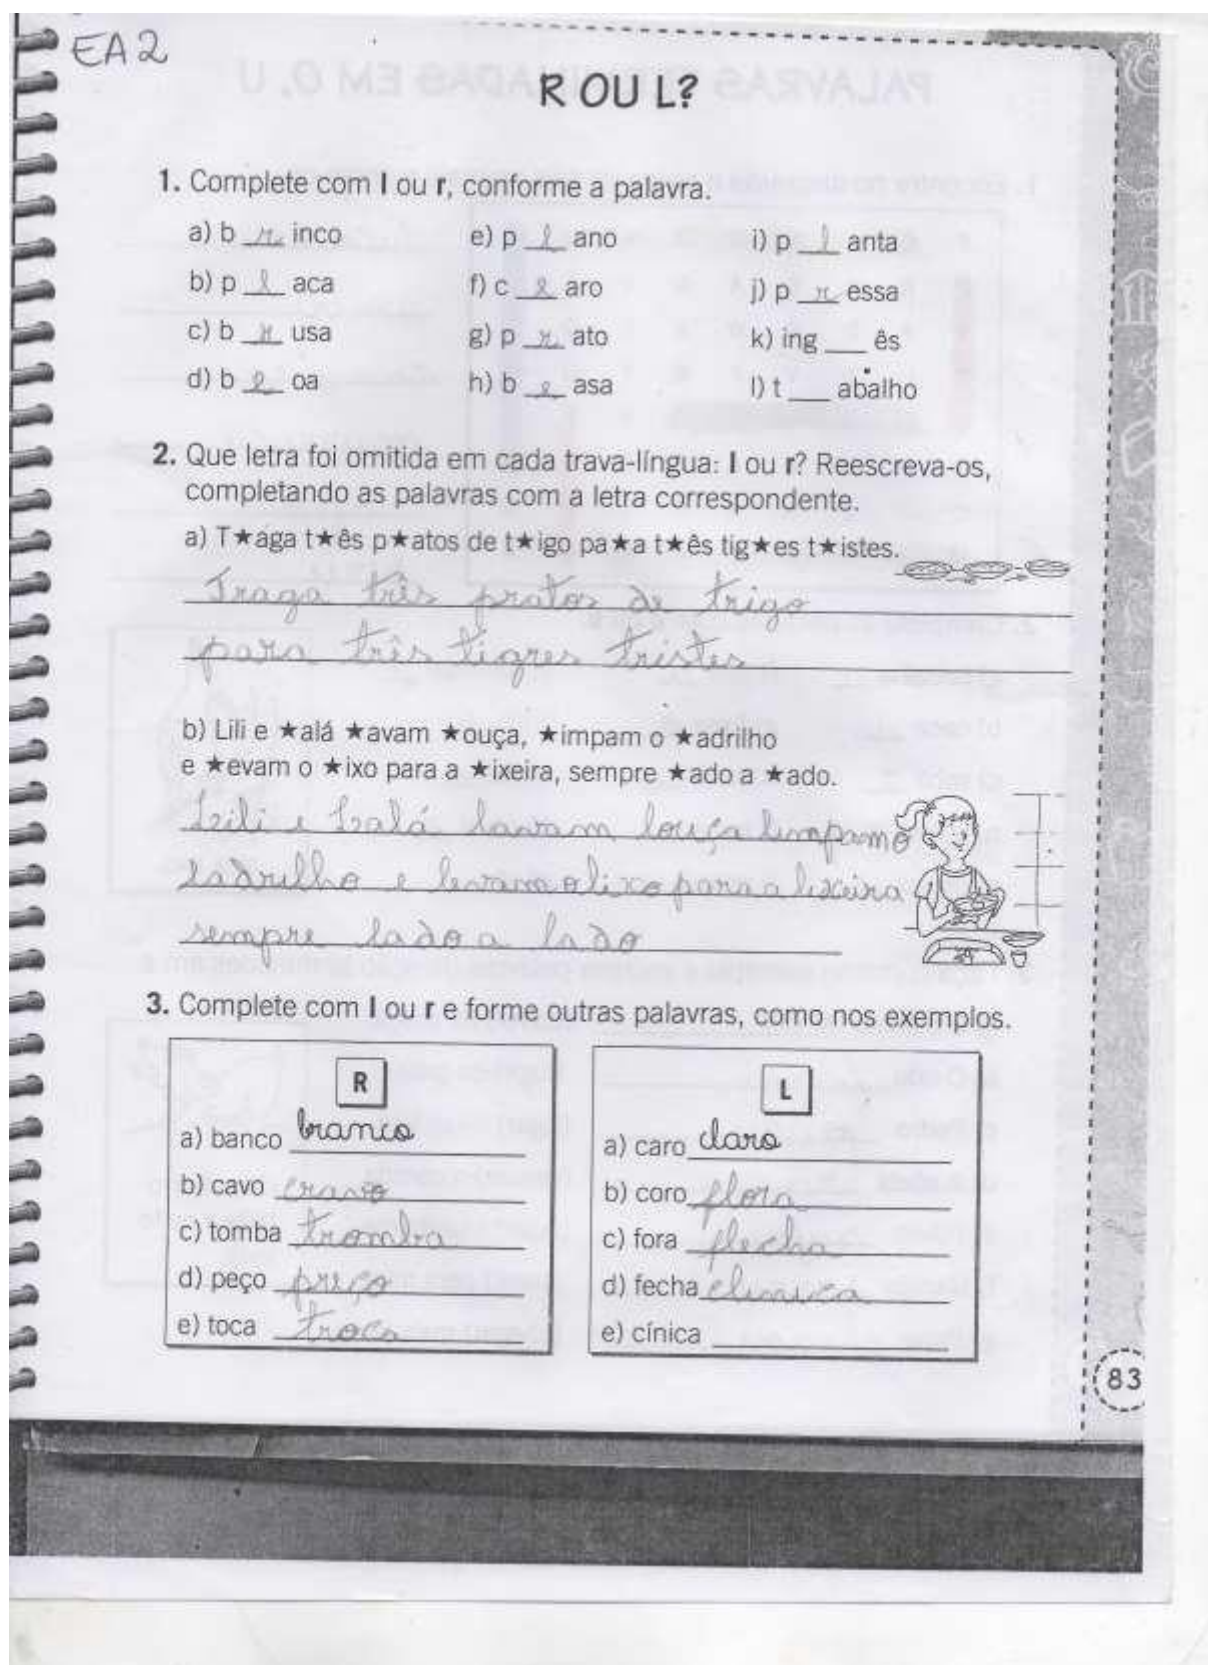 EA2
R OU L?
1. Complete com l ou r, conforme a palavra.
a) b r inco e) p l ano i) p l anta
b) p l aca f) c l aro j) p r essa
c) b r usa g) p r ato k) ing ___ ês
d) b l oa h) b l asa l) t ___ abalho
2. Que letra foi omitida em cada trava-língua: l ou r? Reescreva-os,
completando as palavras com a letra correspondente.
a) T★aga t★ês p★atos de t★igo pa★a t★ês tig★es t★istes.
Traga três pratos de trigo
para três tigres tristes
b) Lili e ★alá ★avam ★ouça, ★impam o ★adrilho
e ★evam o ★ixo para a ★ixeira, sempre ★ado a ★ado.
Lili e Lalá lavam louça limpam o
ladrilho e levam o lixo para a lixeira
sempre lado a lado
3. Complete com l ou r e forme outras palavras, como nos exemplos.
R
a) banco branco
b) cavo cravo
c) tomba tromba
d) peço preço
e) toca troca
L
a) caro claro
b) coro flora
c) fora flecha
d) fecha clinica
e) cínica
83